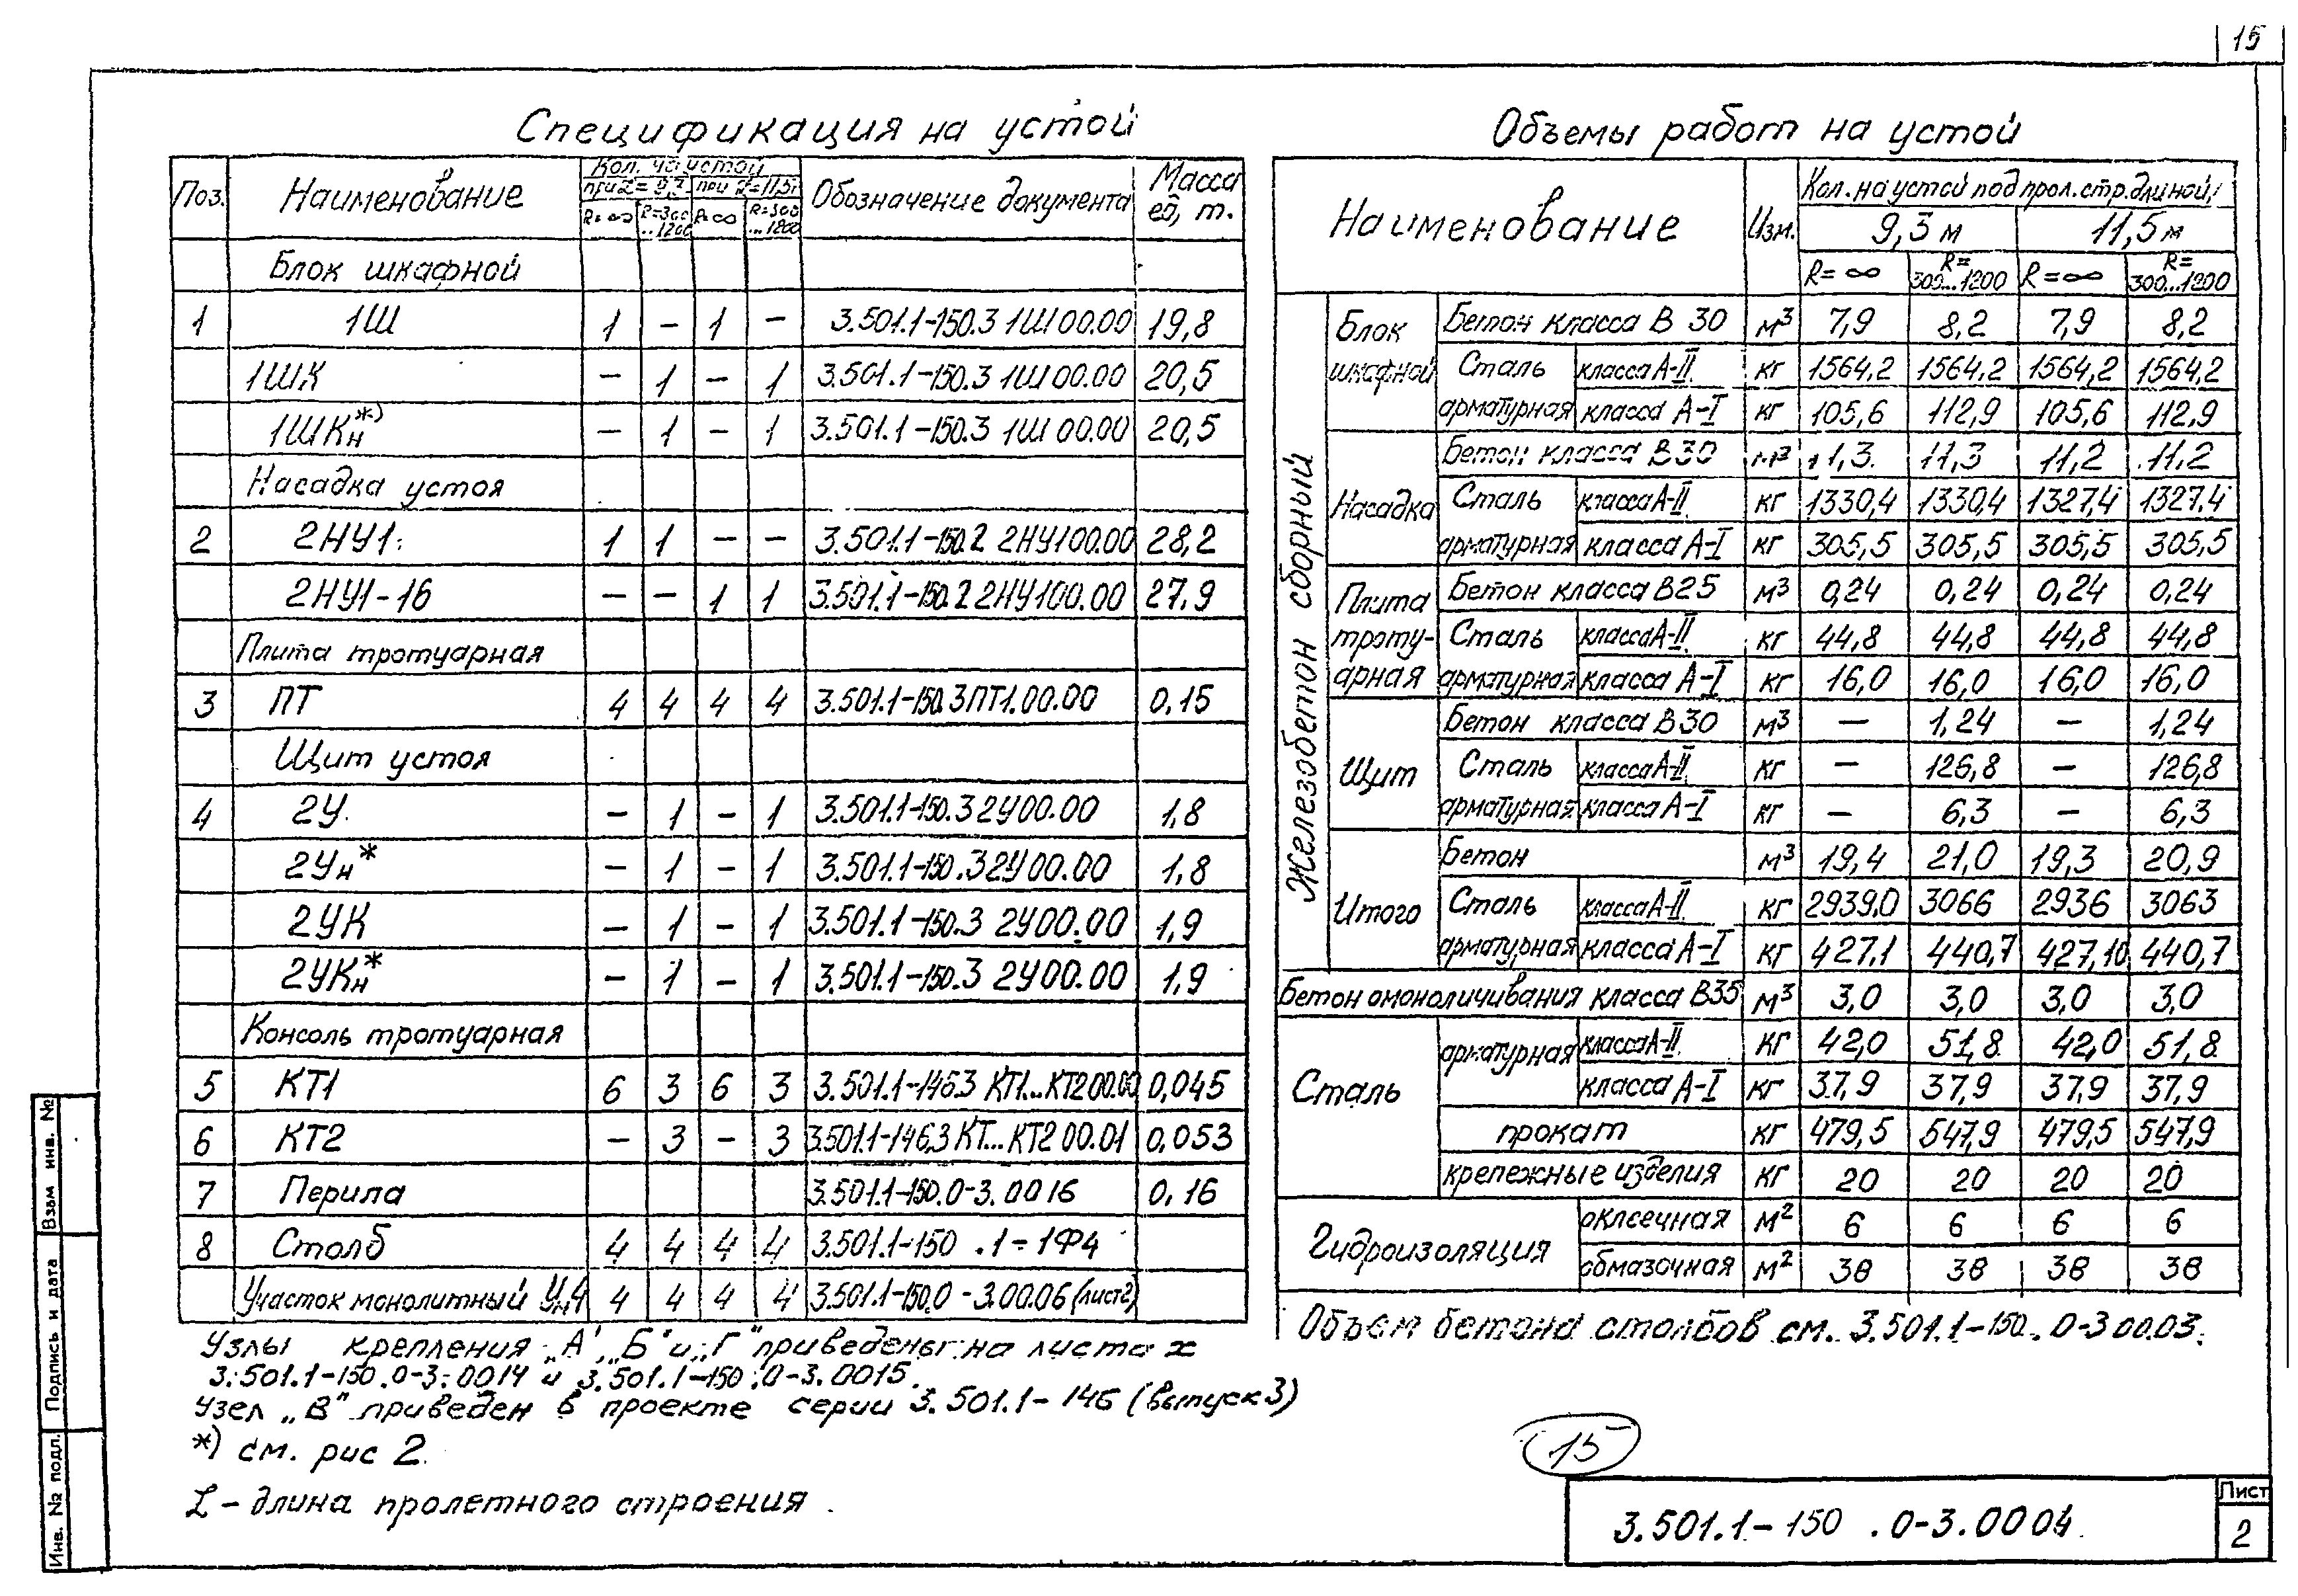 15
Спецификация на устой
Поз. Наименование Кол. на устой Обозначение документа Масса ед, т.
при L = 9,3 при L = 11,5
R=∞ R=300...1200 R=∞ R=300...1200
Блок шкафной
1 1Ш 1 – 1 – 3.501.1-150.3 1Ш 00.00 19,8
1ШК – 1 – 1 3.501.1-150.3 1Ш 00.00 20,5
1ШКн ж) – 1 – 1 3.501.1-150.3 1Ш 00.00 20,5
Насадка устоя
2 2НУ1 1 1 – – 3.501.1-150.2 2НУ1 00.00 28,2
2НУ1-16 – – 1 1 3.501.1-150.2 2НУ1 00.00 27,9
Плита тротуарная
3 ПТ 4 4 4 4 3.501.1-150.3 ПТ1.00.00 0,15
Щит устоя
4 2У – 1 – 1 3.501.1-150.3 2У 00.00 1,8
2Ун* – 1 – 1 3.501.1-150.3 2У 00.00 1,8
2УК – 1 – 1 3.501.1-150.3 2У 00.00 1,9
2УКн* – 1 – 1 3.501.1-150.3 2У 00.00 1,9
Консоль тротуарная
5 КТ1 6 3 6 3 3.501.1-146.3 КТ1...КТ2 00.00 0,045
6 КТ2 – 3 – 3 3.501.1-146,3 КТ...КТ2 00.01 0,053
7 Перила 3.501.1-150.0-3.0016 0,16
8 Столб 4 4 4 4 3.501.1-150 .1-1Ф4
Участок монолитный Ум4 4 4 4 4 3.501.1-150.0-3.00.06 (лист2)
Узлы крепления „А", „Б" и „Г" приведены на листах
3.501.1-150.0-3.0014 и 3.501.1-150.0-3.0015.
Узел „В" приведен в проекте серии 3.501.1-146 (выпуск 3)
*) см. рис 2.
L – длина пролетного строения.
Объемы работ на устой
Наименование Изм. Кол. на устой под прол. стр. длиной,
9,3 м 11,5 м
R=∞ R=300...1200 R=∞ R=300...1200
Железобетон сборный
Блок шкафной Бетон класса В 30 м³ 7,9 8,2 7,9 8,2
Сталь арматурная класса А-II кг 1564,2 1564,2 1564,2 1564,2
класса А-I кг 105,6 112,9 105,6 112,9
Насадка Бетон класса В30 м³ 11,3 11,3 11,2 11,2
Сталь арматурная класса А-II кг 1330,4 1330,4 1327,4 1327,4
класса А-I кг 305,5 305,5 305,5 305,5
Плита тротуарная Бетон класса В25 м³ 0,24 0,24 0,24 0,24
Сталь арматурная класса А-II кг 44,8 44,8 44,8 44,8
класса А-I кг 16,0 16,0 16,0 16,0
Щит Бетон класса В30 м³ – 1,24 – 1,24
Сталь арматурная класса А-II кг – 126,8 – 126,8
класса А-I кг – 6,3 – 6,3
Итого Бетон м³ 19,4 21,0 19,3 20,9
Сталь арматурная класса А-II кг 2939,0 3066 2936 3063
класса А-I кг 427,1 440,7 427,10 440,7
Бетон омоноличивания класса В35 м³ 3,0 3,0 3,0 3,0
Сталь арматурная класса А-II кг 42,0 51,8 42,0 51,8
класса А-I кг 37,9 37,9 37,9 37,9
прокат кг 479,5 547,9 479,5 547,9
крепежные изделия кг 20 20 20 20
Гидроизоляция оклеечная м² 6 6 6 6
обмазочная м² 38 38 38 38
Объем бетона столбов см. 3.501.1-150.0-3 00.03.
15
3.501.1-150 .0-3.0004
Лист
2
Взам инв. №
Подпись и дата
Инв. № подл.